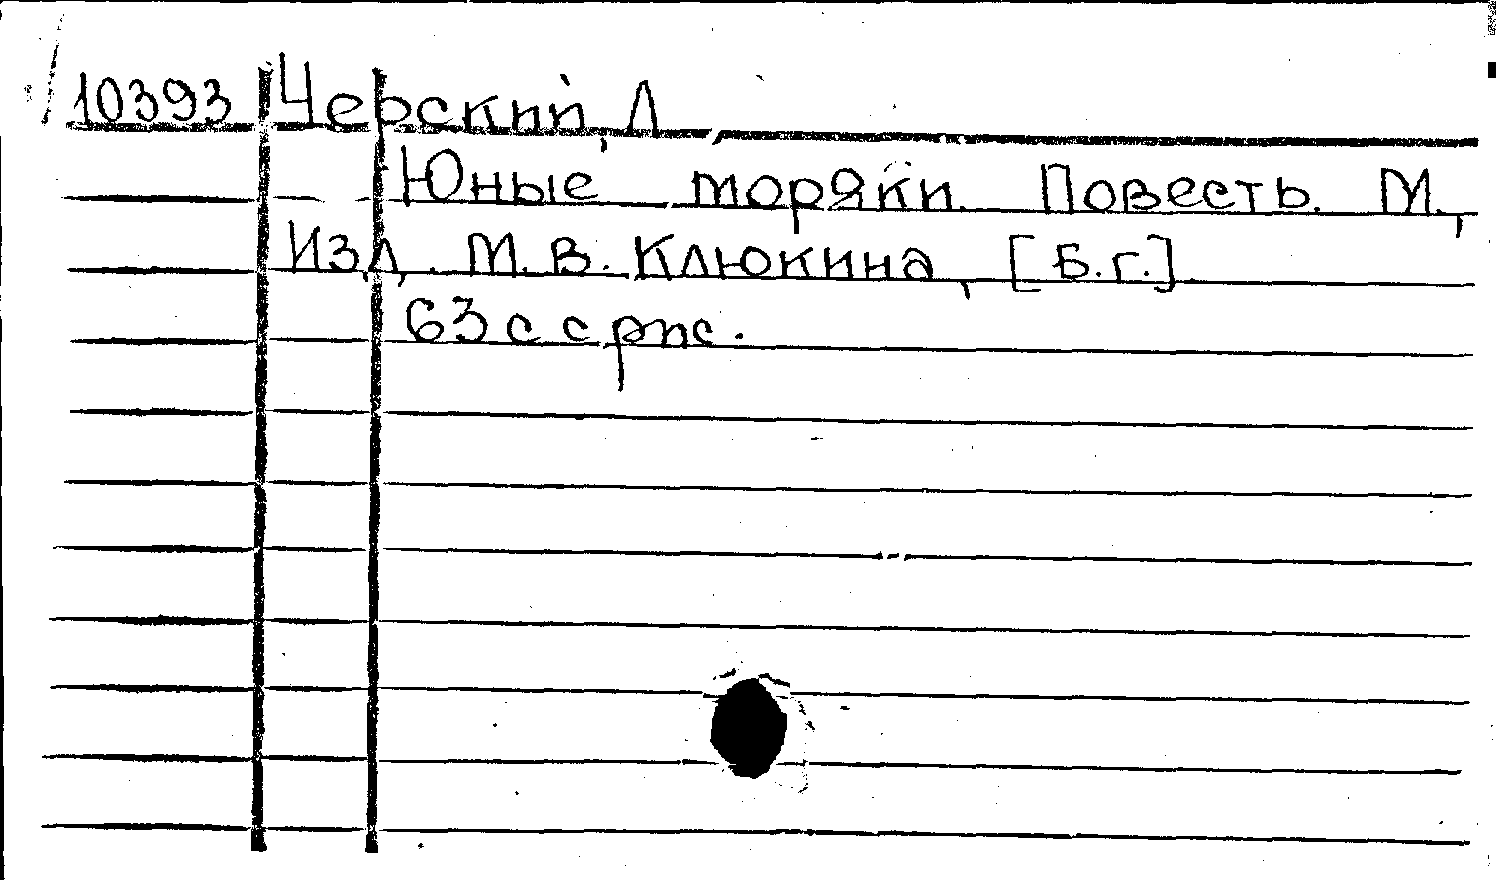 10393 Черский, Л
Юные моряки. Повесть. М.,
Изд. М.В. Клюкина, [Б.г.]
63 с с рис.